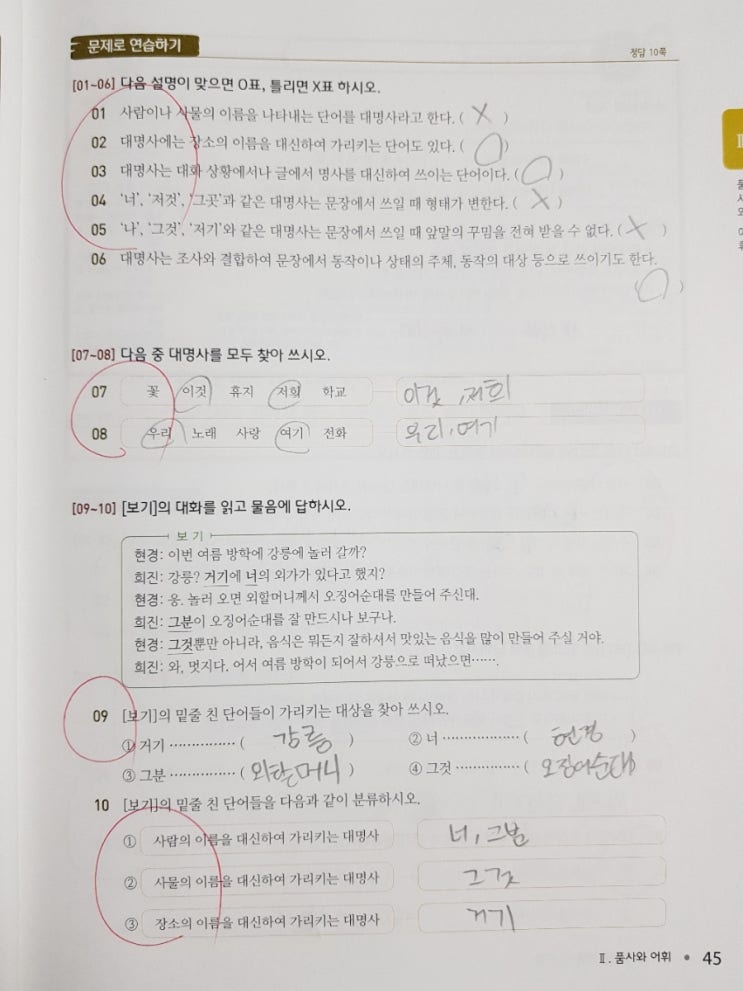 문제로 연습하기
정답 10쪽
[01~06] 다음 설명이 맞으면 O표, 틀리면 X표 하시오.
01 사람이나 사물의 이름을 나타내는 단어를 대명사라고 한다. ( X )
02 대명사에는 장소의 이름을 대신하여 가리키는 단어도 있다. ( O )
03 대명사는 대화 상황에서나 글에서 명사를 대신하여 쓰이는 단어이다. ( O )
04 ‘너’, ‘저것’, ‘그곳’과 같은 대명사는 문장에서 쓰일 때 형태가 변한다. ( X )
05 ‘나’, ‘그것’, ‘저기’와 같은 대명사는 문장에서 쓰일 때 앞말의 꾸밈을 전혀 받을 수 없다. ( X )
06 대명사는 조사와 결합하여 문장에서 동작이나 상태의 주체, 동작의 대상 등으로 쓰이기도 한다.
( O )
[07~08] 다음 중 대명사를 모두 찾아 쓰시오.
07 꽃 이것 휴지 저희 학교 이것, 저희
08 우리 노래 사랑 여기 전화 우리, 여기
[09~10] [보기]의 대화를 읽고 물음에 답하시오.
보기
현경: 이번 여름 방학에 강릉에 놀러 갈까?
희진: 강릉? 거기에 너의 외가가 있다고 했지?
현경: 응. 놀러 오면 외할머니께서 오징어순대를 만들어 주신대.
희진: 그분이 오징어순대를 잘 만드시나 보구나.
현경: 그것뿐만 아니라, 음식은 뭐든지 잘하셔서 맛있는 음식을 많이 만들어 주실 거야.
희진: 와, 멋지다. 어서 여름 방학이 되어서 강릉으로 떠났으면…….
09 [보기]의 밑줄 친 단어들이 가리키는 대상을 찾아 쓰시오.
① 거기 …………… ( 강릉 ) ② 너 ……………… ( 현경 )
③ 그분 …………… ( 외할머니 ) ④ 그것 …………… ( 오징어순대 )
10 [보기]의 밑줄 친 단어들을 다음과 같이 분류하시오.
① 사람의 이름을 대신하여 가리키는 대명사 너, 그분
② 사물의 이름을 대신하여 가리키는 대명사 그것
③ 장소의 이름을 대신하여 가리키는 대명사 거기
Ⅱ. 품사와 어휘 • 45
Ⅱ
품사와 어휘